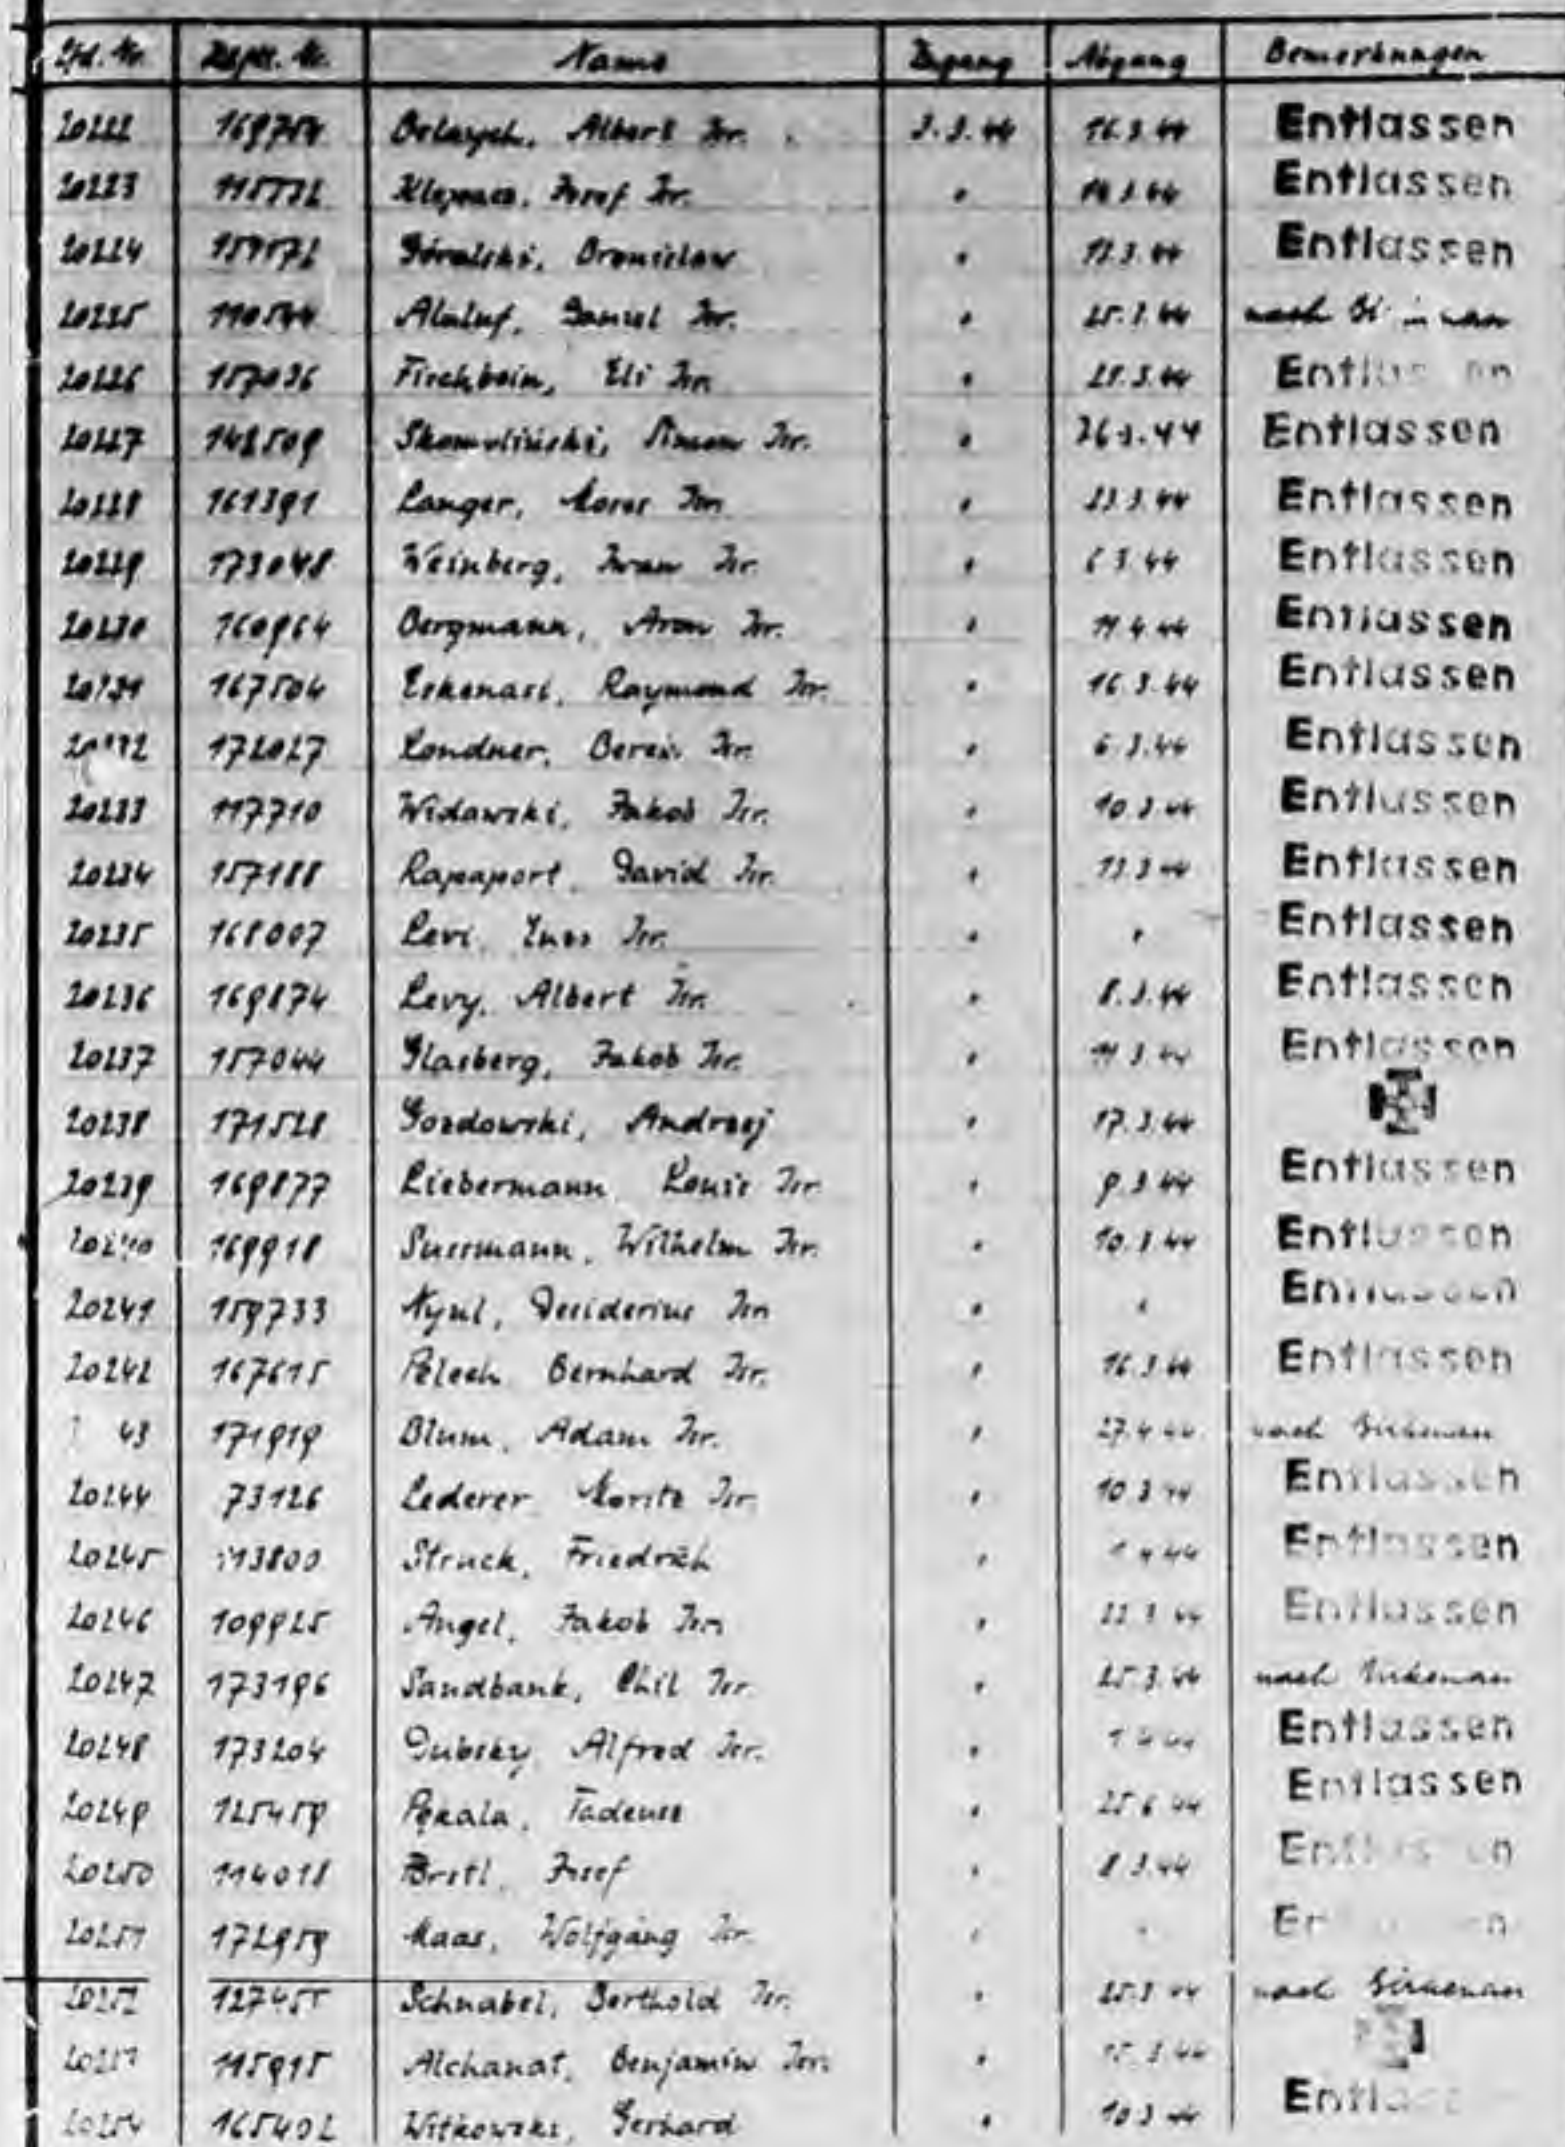 Lfd. Nr. Name Zugang Abgang Bemerkungen
20222 Albert Isr. 3.3.44 16.3.44 Entlassen
20223 Josef Isr. " Entlassen
20224 Góralski, Bronislaw " 13.3.44 Entlassen
20225 Alaluf, Daniel Isr. " 25.3.44 nach
20226 157036 Fischbein, Eli Isr. " Entlassen
20227 148509 Isr. " 26.3.44 Entlassen
20228 161391 Langer, Isr. " 23.3.44 Entlassen
20229 173048 Weinberg, Iwan Isr. " 6.3.44 Entlassen
20230 160964 Bergmann, Aron Isr. " 11.4.44 Entlassen
20231 167504 Eskenasi, Raymond Isr. " 16.3.44 Entlassen
172027 Londner, Isr. " 6.3.44 Entlassen
20233 117710 Widawski, Jakob Isr. " 10.3.44 Entlassen
20234 157188 Rapaport, David Isr. " 13.3.44 Entlassen
20235 168007 Levi, Isr. " " Entlassen
20236 169874 Levy, Albert Isr. " 8.3.44 Entlassen
20237 157044 Glasberg, Jakob Isr. " 11.3.44 Entlassen
20238 171528 Gozdowski, Andrzej " 17.3.44
20239 169877 Liebermann Louis Isr. " 9.3.44 Entlassen
20240 169918 Sussmann, Wilhelm Isr. " 10.3.44 Entlassen
20241 159733 Nyul, Desiderius Isr. " " Entlassen
20242 167615 Bernhard Isr. " 16.3.44 Entlassen
43 171919 Blum, Adam Isr. " 27.4.44 nach Birkenau
20244 73126 Lederer Moritz Isr. " 10.3.44 Entlassen
20245 113800 Struck, Friedrich " 1.4.44 Entlassen
20246 109925 Angel, Jakob Isr. " 22.3.44 Entlassen
20247 173196 Sandbank, Chil Isr. " 25.3.44 nach Birkenau
20248 173204 Dubsky, Alfred Isr. " 1.4.44 Entlassen
20249 125459 Pękala, Tadeusz " 25.6.44 Entlassen
20250 114018 Josef " 8.3.44 Entlassen
20251 172959 Maas, Wolfgang Isr. " "
20252 127455 Schnabel, Berthold Isr. " 25.3.44 nach Birkenau
115915 Alchanat, Benjamin Isr. " 15.3.44
20254 165402 Witkowski, Gerhard " 10.3.44